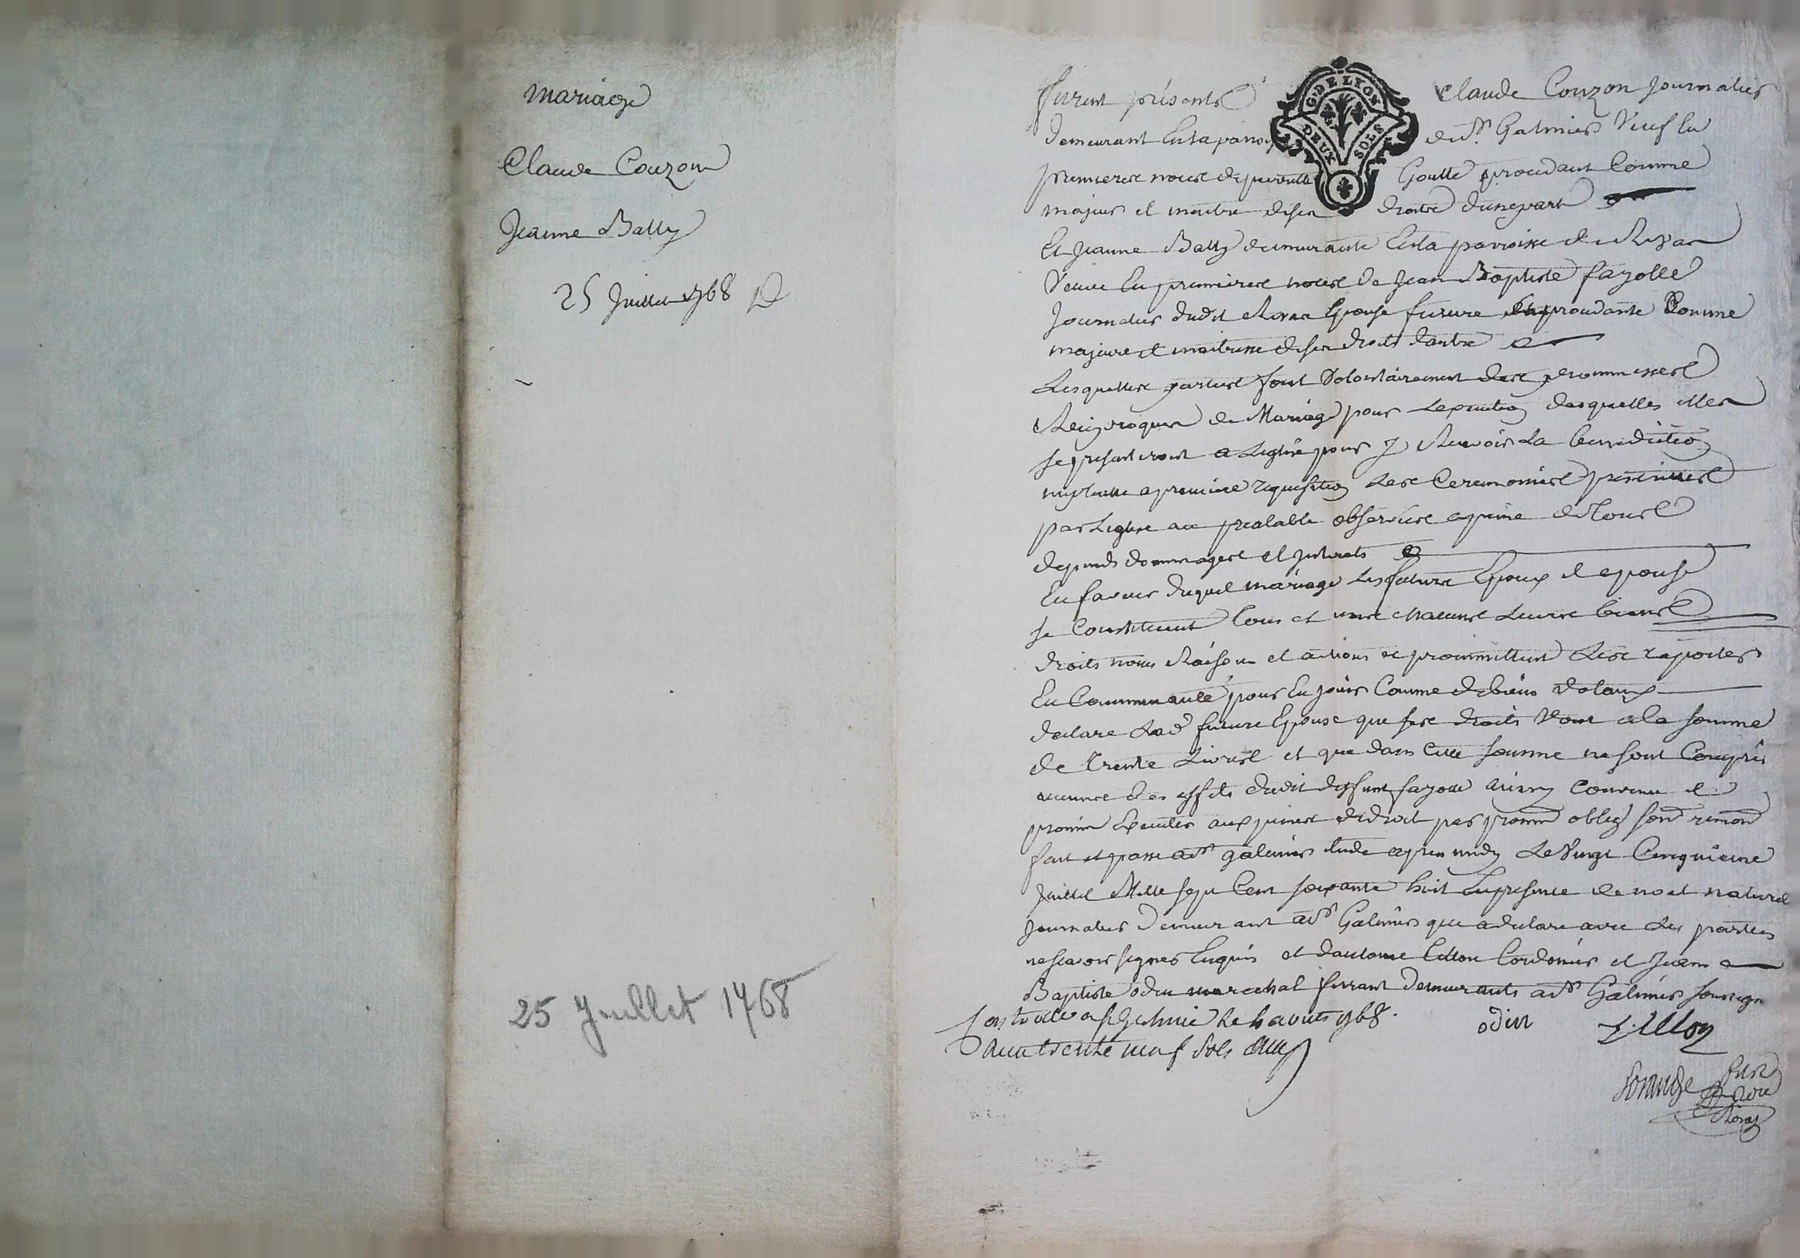 mariage
Claude Couzon
Jeanne Batty
25 Juillet 1768
25 Juillet 1768
furent présents Claude Couzon Journalier
G. DE LYON
DEUX SOLS
demeurant en la parroisse de St. Galmier Veuf en
premieres noces de Goutte procedant Comme
majeur et maitre de ses droits d'une part
Et Jeanne Batty demeurante en la parroisse de
Veuve en premieres noces de Jean Baptiste fayolle
Journalier dudit Epouse future procedante Comme
majeure et maitresse de ses droits d'autre
Lesquelles parties font Volontairement des promesses
Reciproques de Mariage pour Lexecution desquelles elles
se presenteront a Leglise pour y Recevoir La benediction
nuptialle a premiere requisition Les Ceremonies prescrittes
par Leglise au prealable observées a peine de tous
depends dommages et interets
En faveur duquel mariage Les future Epoux et epouse
se Constituent tous et uns chacuns Leurs biens
droits noms Raisons et actions et promettent Les rapporter
En Communauté pour En jouir Comme de biens dotaux
declare Lad. future Epouse que ses droits Vont a la somme
de Trente Livres et que dans cette somme ne sont Compris
aucuns des effets dudit deffunt fayolle ainsy Convenu et
promis Executer aux peines de droit par prom oblig soum renon
fait et passé a St galmier etude apres midy Le Vingt Cinquieme
Juillet Mille sept Cent soixante huit En presence de noel naturel
Journalier demeurant a St Galmier qui a declaré avec Les parties
ne scavoir signer Enquis et d'antoine Cordonier et Jean
Baptiste odin marechal ferrant demeurants a St Galmier soussignes
Controllé a St Galmier le 4 aout 1768.
odin
trente neuf sols